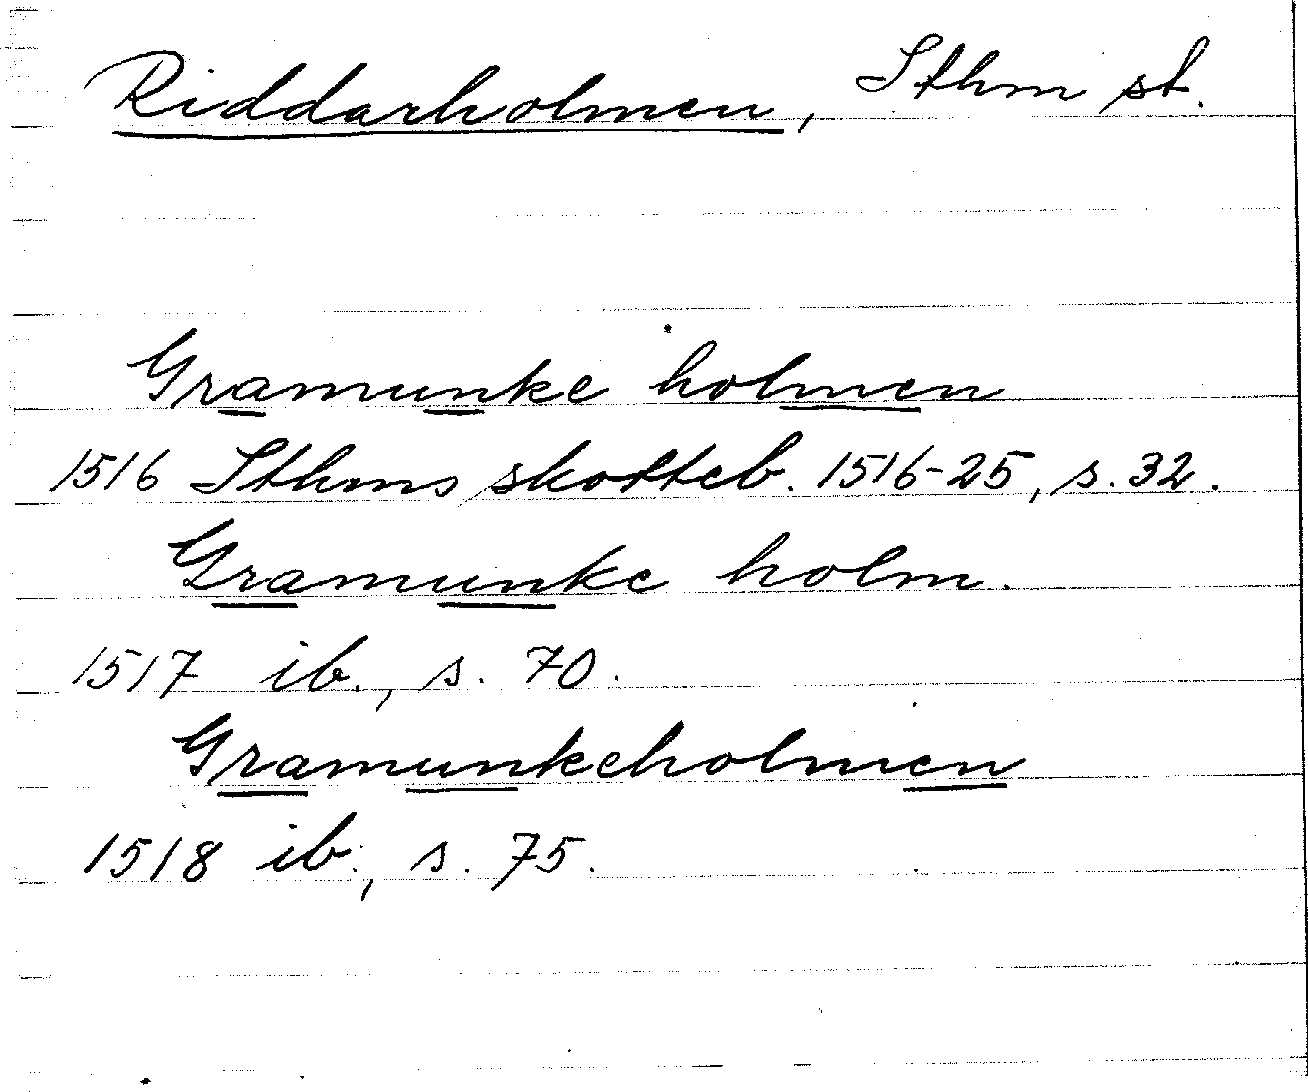 Riddarholmen, Sthm st.
Gramunke holmen
1516 Sthms skotteb. 1516-25, s. 32.
Gramunke holm.
1517 ib., s. 70.
Gramunkeholmen
1518 ib., s. 75.